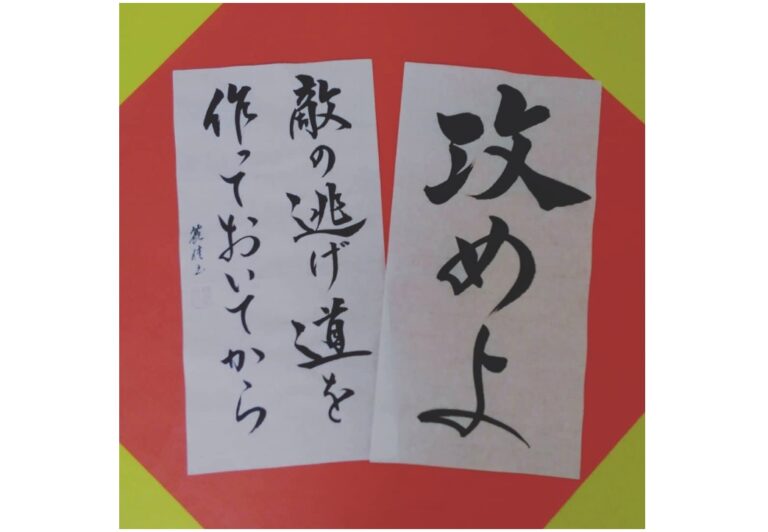 敵の逃げ道を
作っておいてから
攻めよ